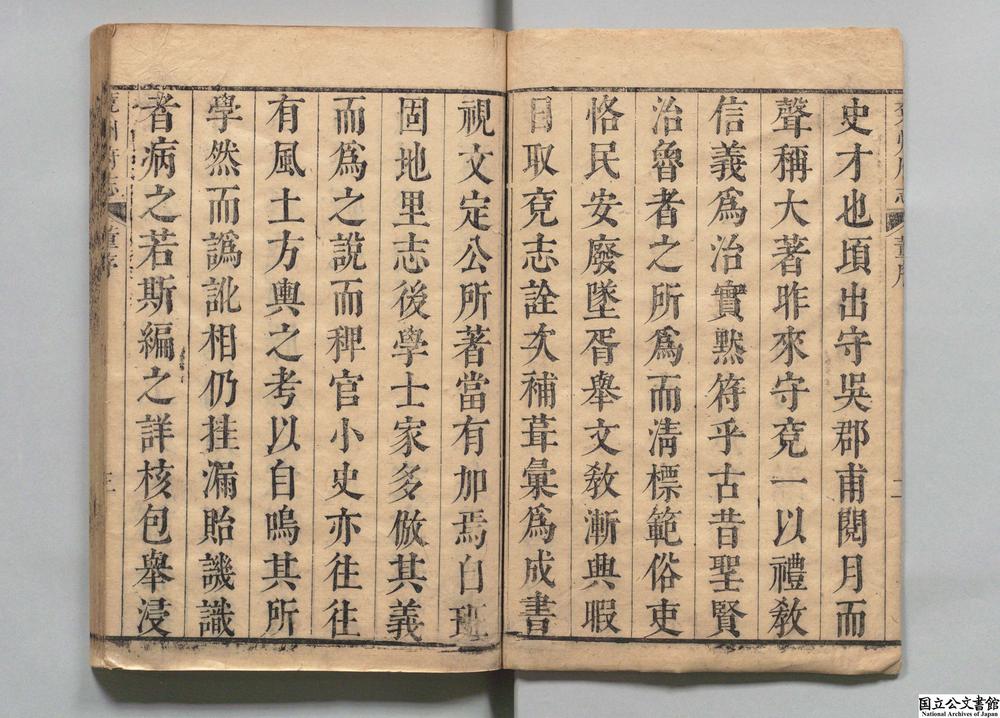 史才也頃出守吳郡甫閱月而
聲稱大著昨來守兗一以禮敎
信義爲治實黙符乎古昔聖賢
治魯者之所爲而淸標範俗吏
恪民安廢墜胥舉文敎漸興暇
日取兗志詮次補葺彙爲成書
視文定公所著當有加焉自班
固地里志後學士家多倣其義
而爲之說而稗官小史亦往往
有風土方輿之考以自鳴其所
學然而譌訛相仍挂漏貽譏識
者病之若斯編之詳核包舉浸
兗州府志
董序
三
国立公文書館
National Archives of Japan